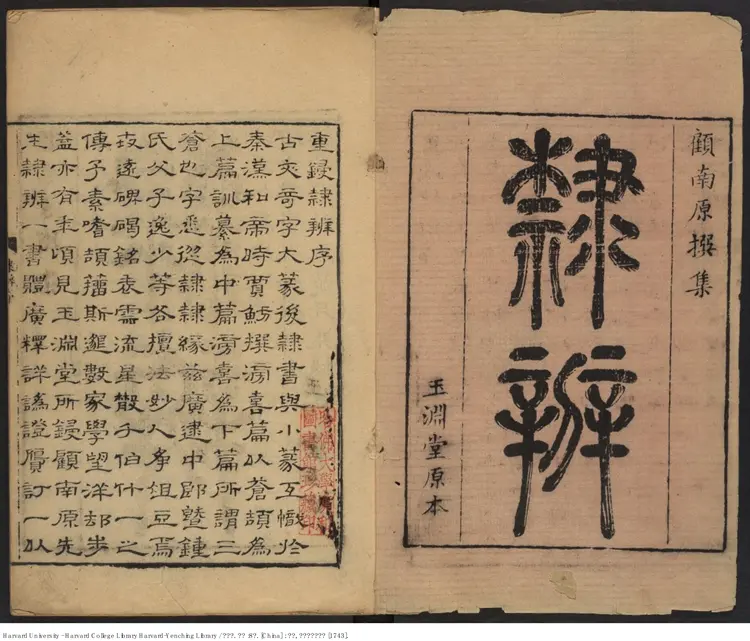 顧南原撰集
隸辨
玉淵堂原本
重鋟隸辨序
古文奇字大篆後隸書與小篆互幟於
秦漢和帝時賈魴撰滂喜篇以蒼頡為
上篇訓纂為中篇滂喜為下篇所謂三
蒼也字悉從隸隸緣茲廣逮中郎暨鍾
氏父子逸少等各擅法妙人爭俎豆焉
故遠碑碣銘表霝流星散千伯什一之
傳予素嗜頡籀斯邈數家學望洋却步
蓋亦有年頃見玉淵堂所鋟顧南原先
生隸辨一書體廣釋詳譌證贗訂一以
Harvard University - Harvard College Library Harvard-Yenching Library / ???. ?? :8?. [China] : ??, ??????? [1743].